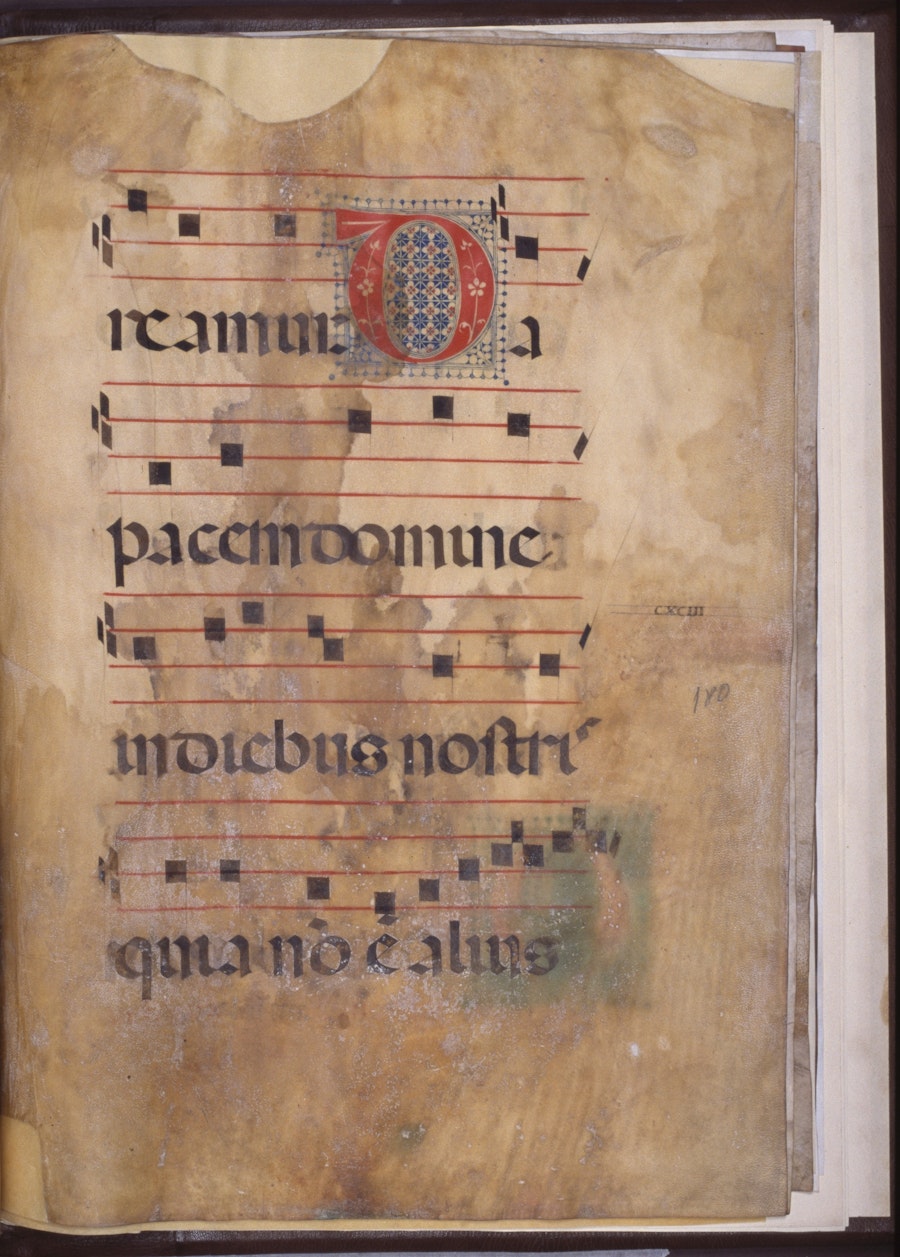 reamur Da
pacem domine
CXCIII
in diebus nostris
quia nō ē alius